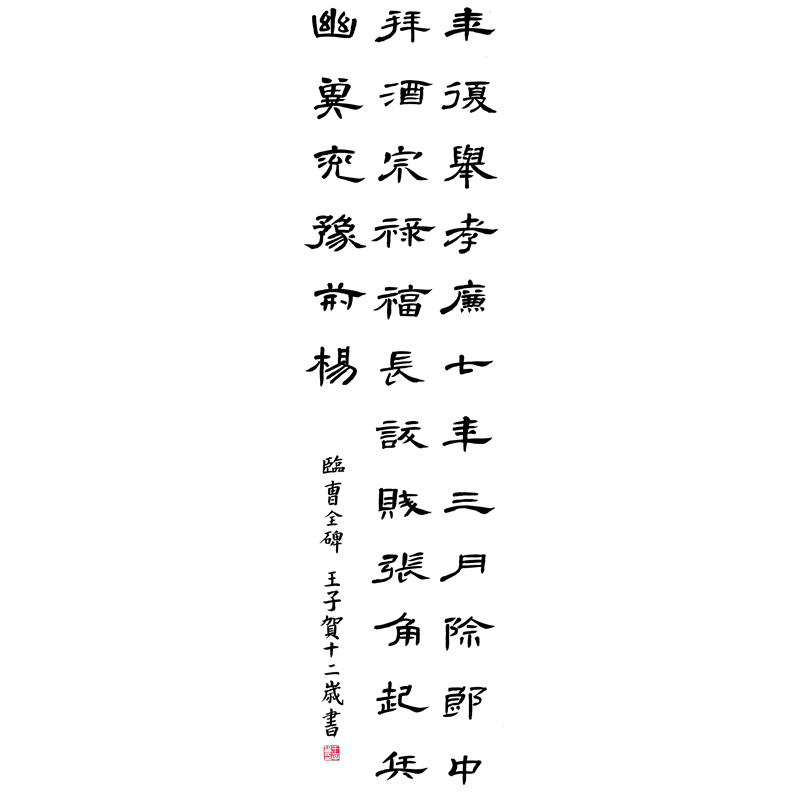 年復舉孝廉七年三月除郎中
拜酒宗祿福長訞賊張角起兵
幽冀兖豫荊楊
臨曹全碑 王子賀十二歲書